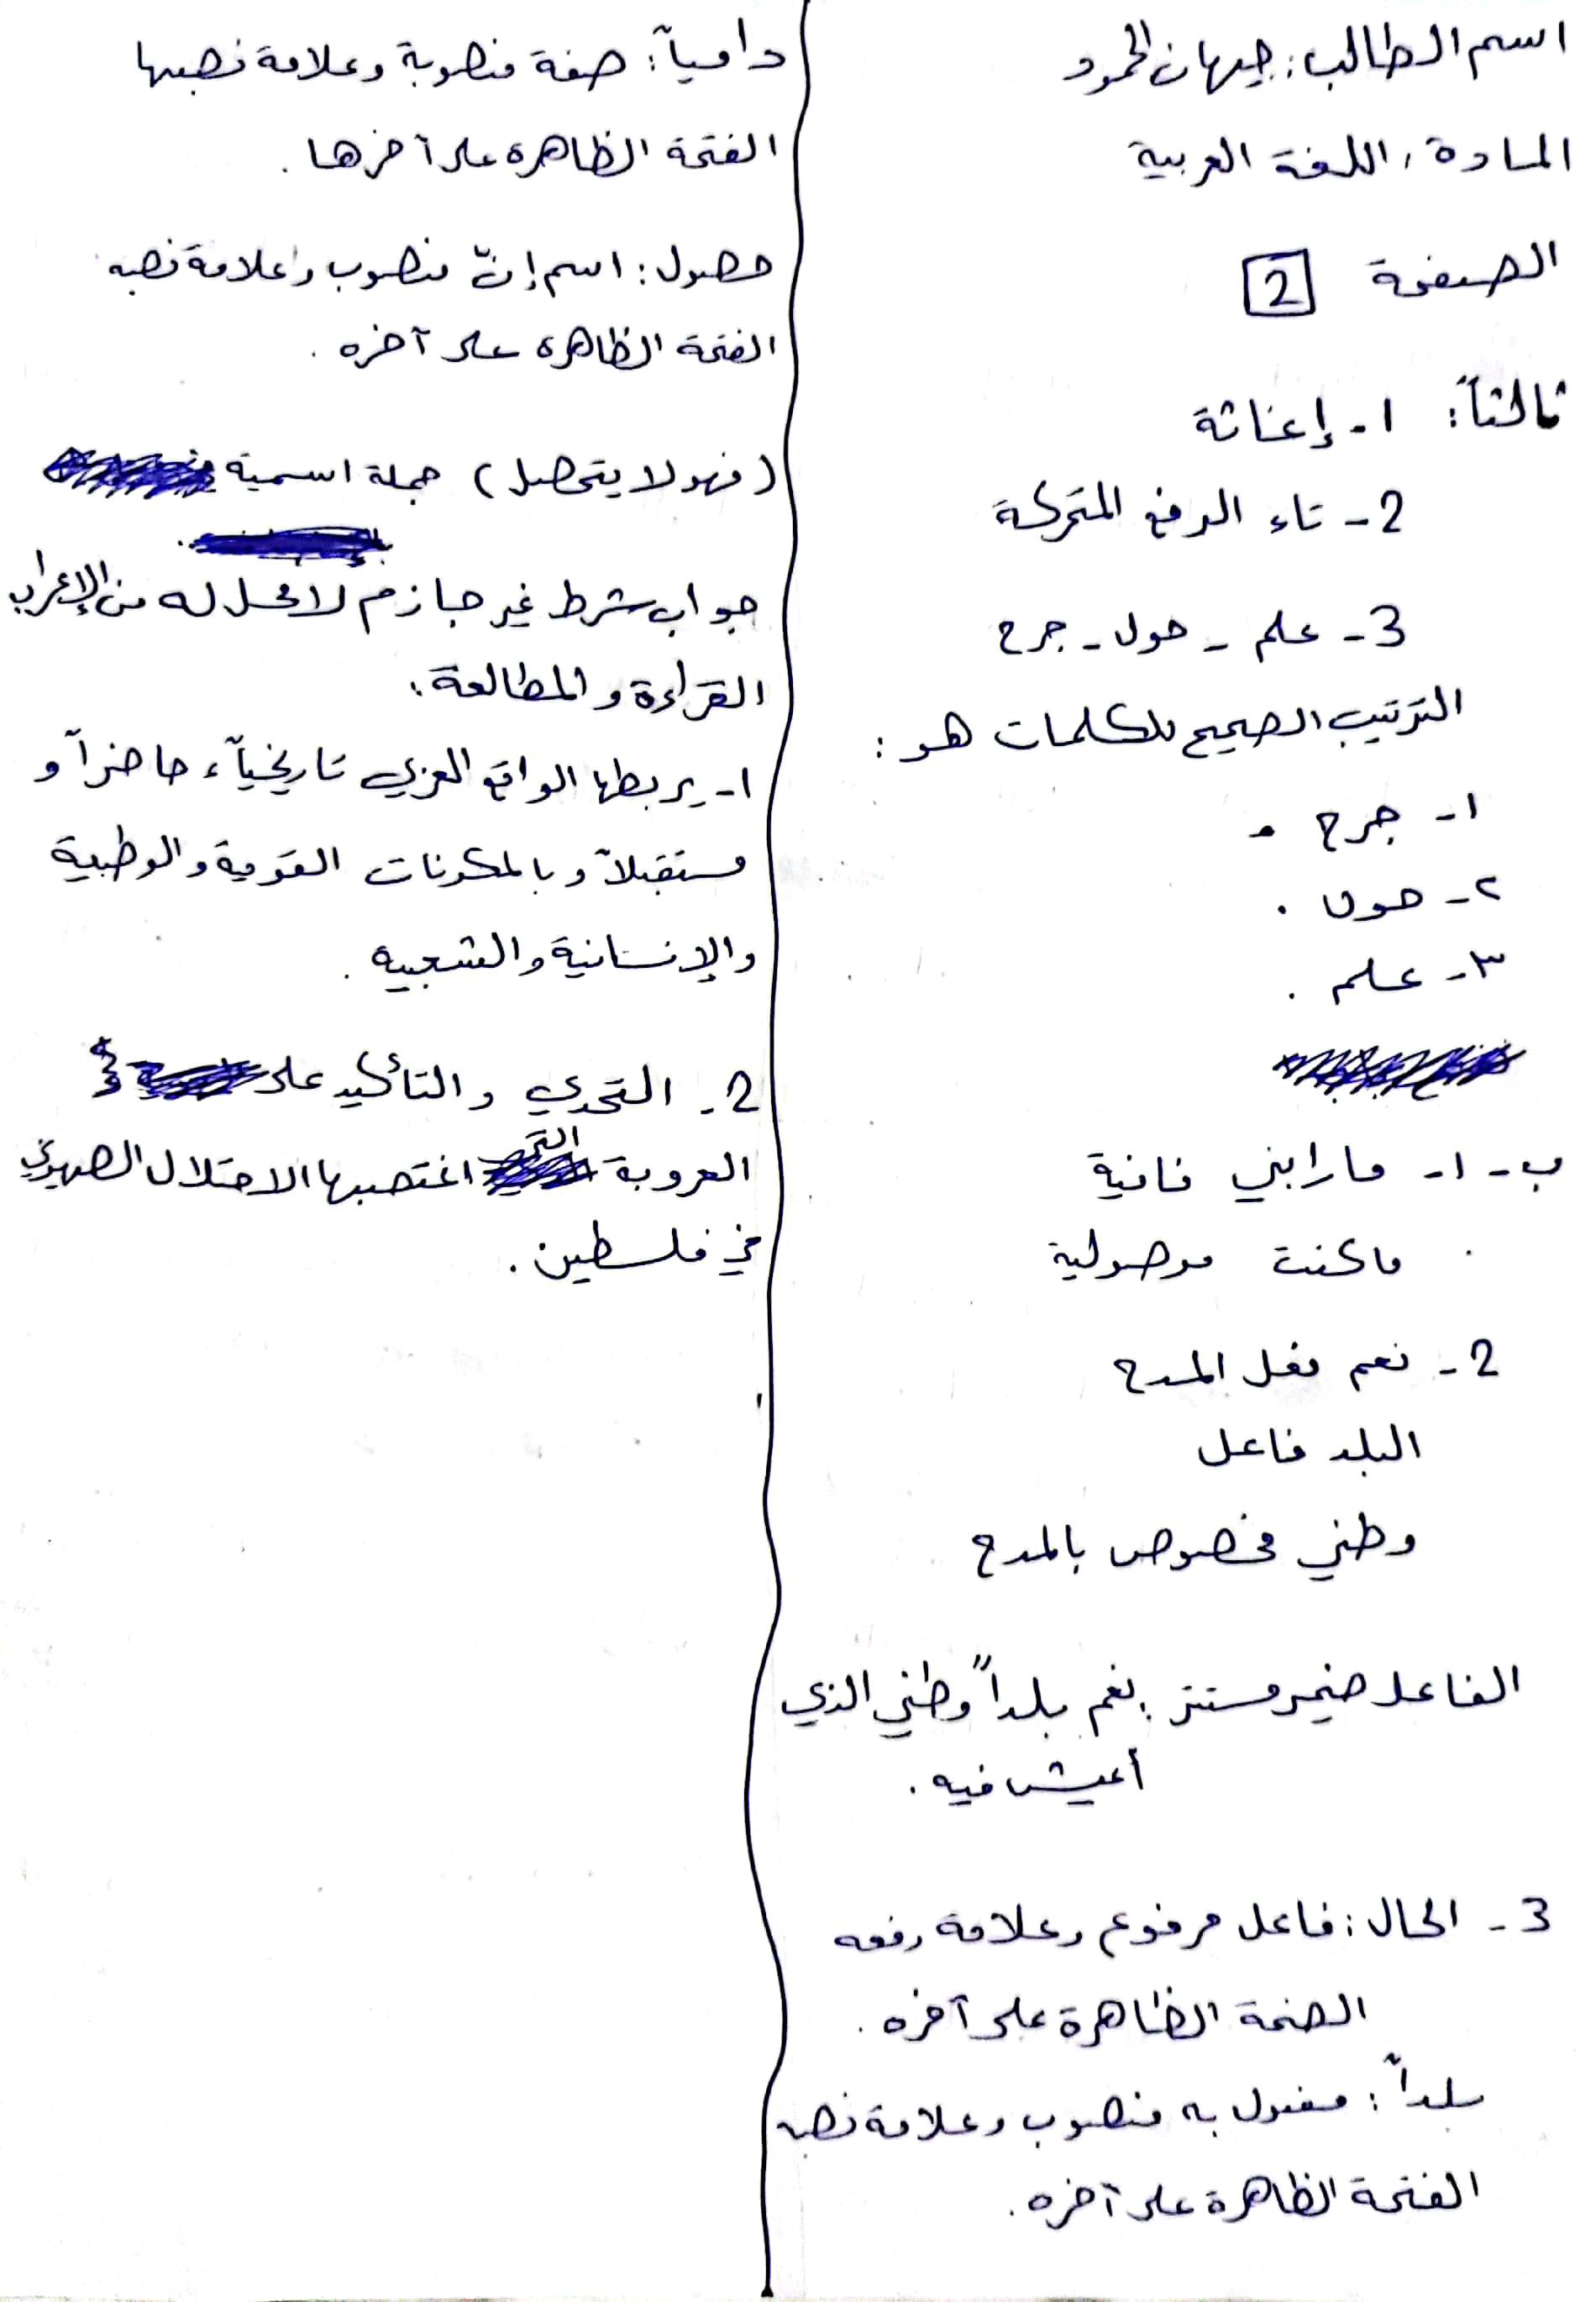 اسم الطالب: جيهان الحمود
المادة: اللغة العربية
الصفحة 2
ثالثاً: 1- إغاثة
2- تاء الرفع المتحركة
3- علم - حول - جرح
الترتيب الصحيح للكلمات هو:
١- جرح .
٢- حول .
٣- علم .
ب- ١- ما رابني نافية
ما كنت موصولية
2- نعم فعل المدح
البلد فاعل
وطني مخصوص بالمدح
الفاعل ضمير مستتر: نعم بلداً وطني الذي
أعيش فيه .
3- الحال: فاعل مرفوع وعلامة رفعه
الضمة الظاهرة على آخره .
بلداً: مفعول به منصوب وعلامة نصبه
الفتحة الظاهرة على آخره .
دامياً: صفة منصوبة وعلامة نصبها
الفتحة الظاهرة على آخرها .
حصول: اسم إنّ منصوب وعلامة نصبه
الفتحة الظاهرة على آخره .
(فهو لا يتحصل) جملة اسمية
جواب شرط غير جازم لا محل له من الإعراب
القراءة والمطالعة:
١- يربطها الواقع العربي تاريخياً، حاضراً و
مستقبلاً وبالمكونات القومية والوطنية
والإنسانية والشعبية .
2- التحدي والتأكيد على
العروبة التي اغتصبها الاحتلال الصهيوني
في فلسطين .